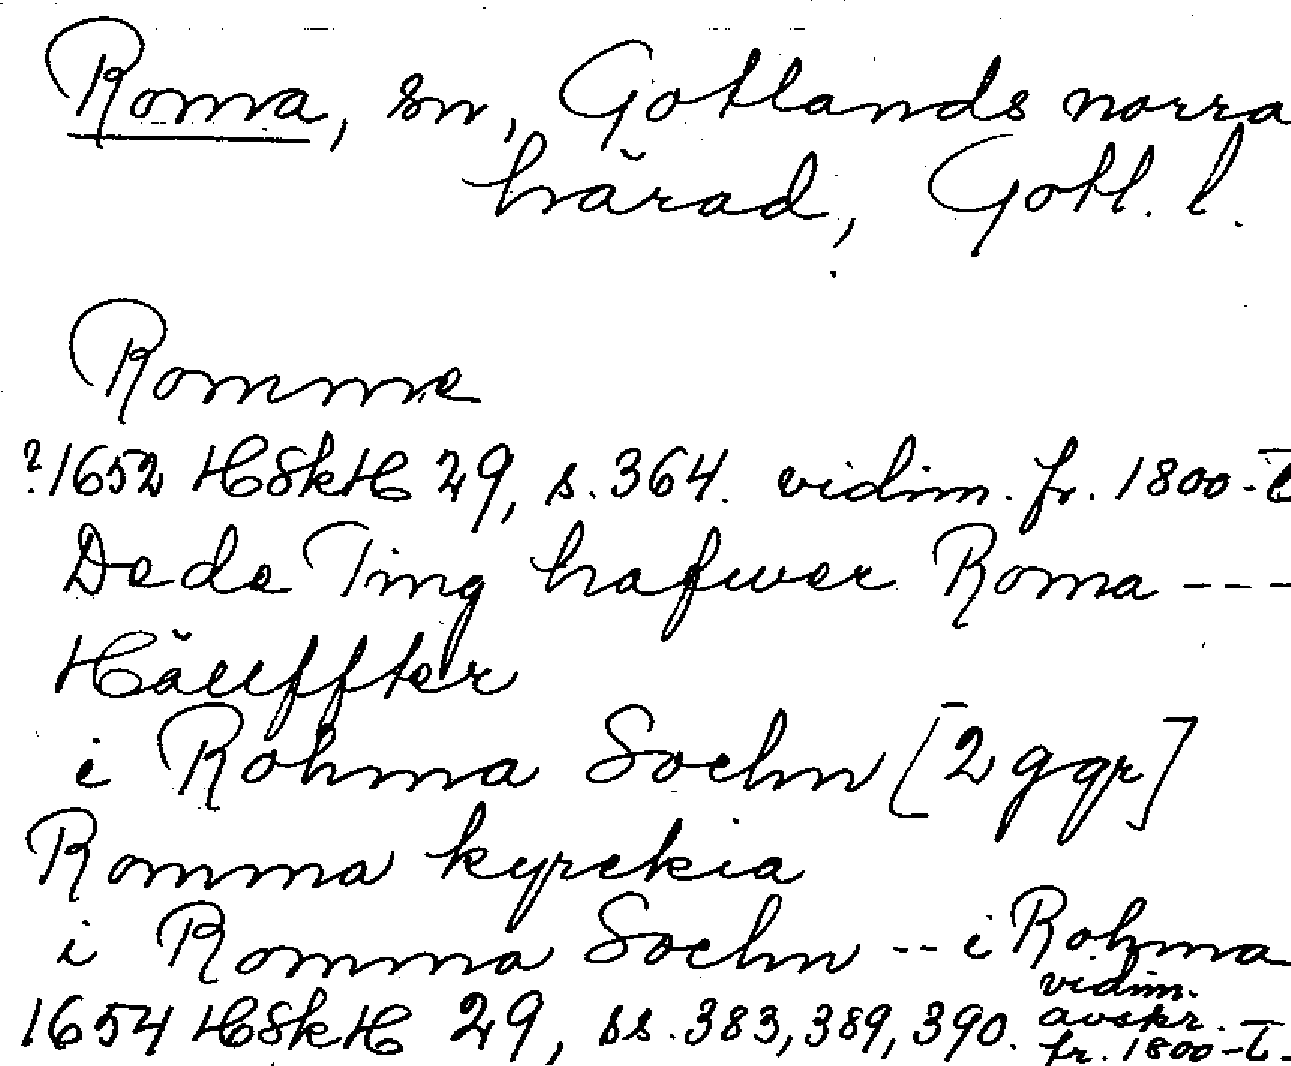 Roma, sn, Gotlands norra
härad, Gotl. l.
Romme
?1652 HSkH 29, s. 364. vidim. fr. 1800-t
Dede Ting hafwer Roma ---
Häuffter
i Rohma Sochn [2 ggr]
Romma kyrckia
i Romma Sochn -- i Rohma
1654 HSkH 29, ss. 383, 389, 390. vidim.
avskr.
fr. 1800-t.